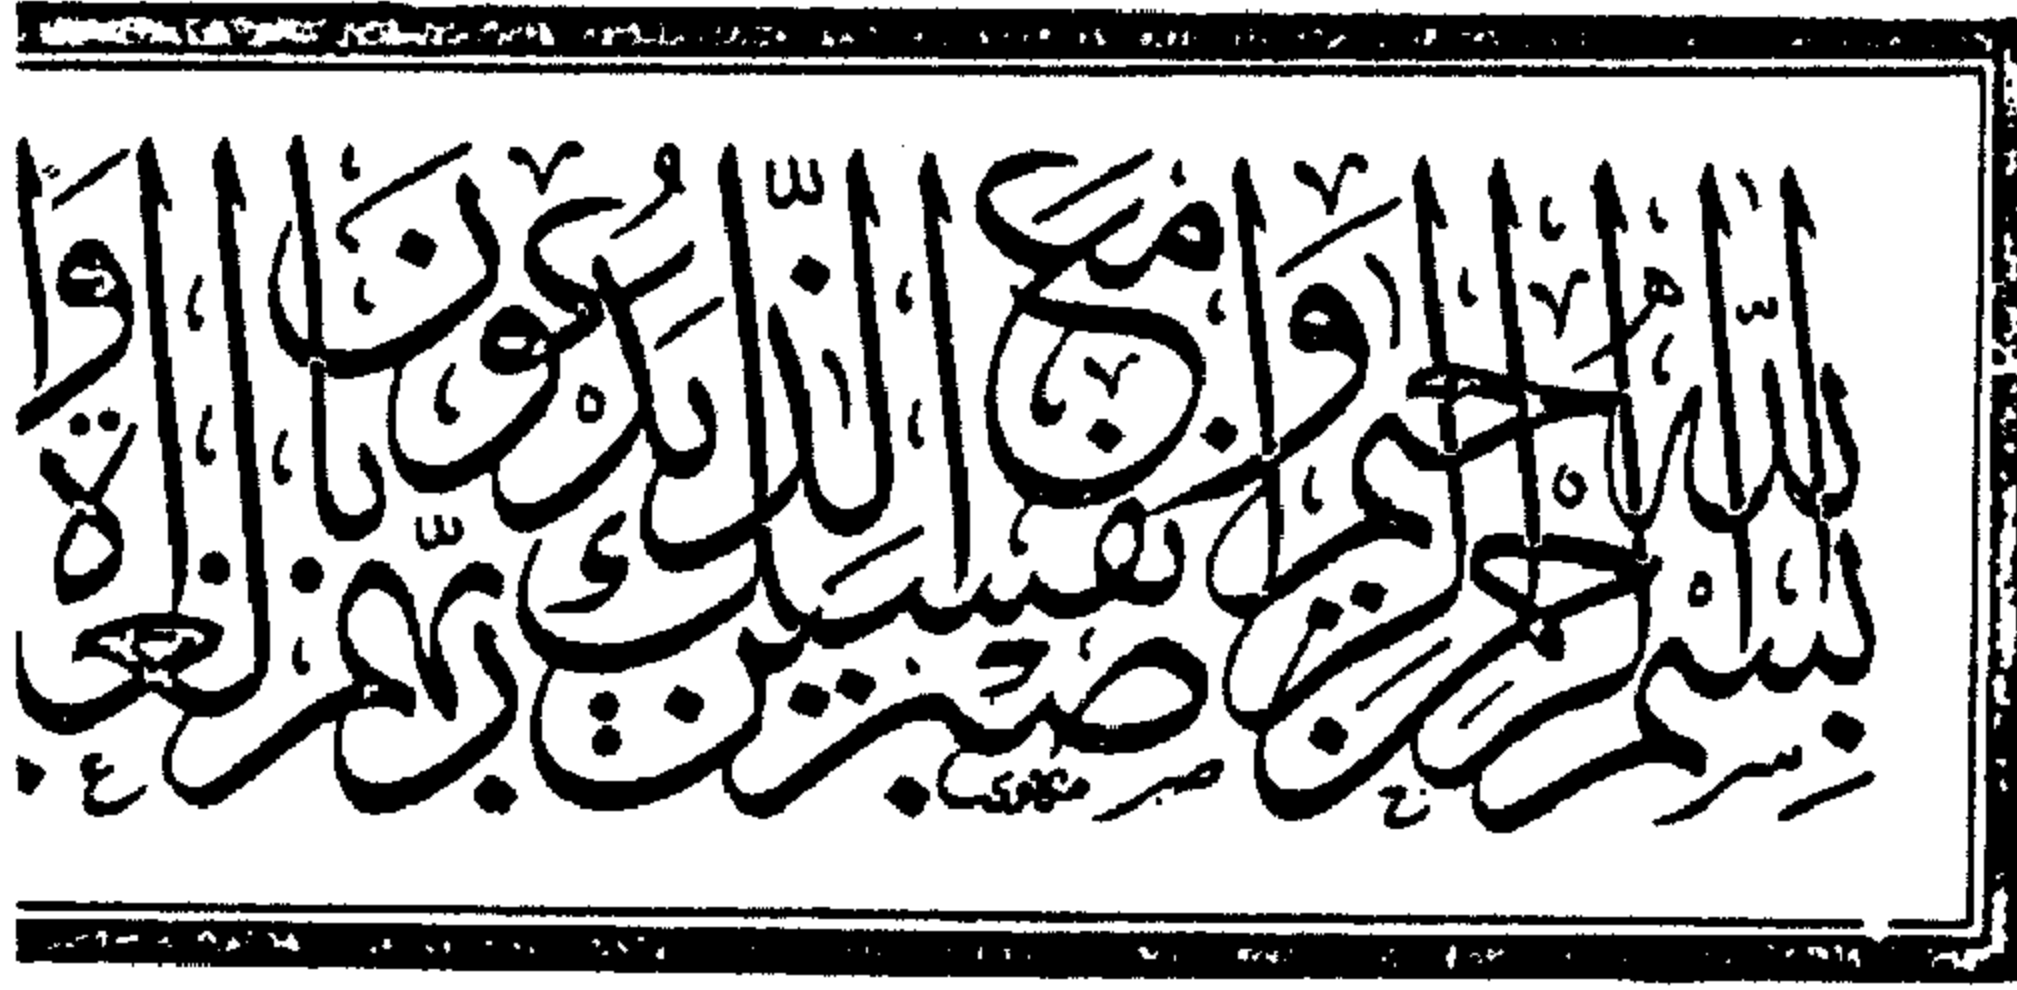 بسم الله الرحمن الرحيم واصبر نفسك مع الذين يدعون ربهم بالغداة و